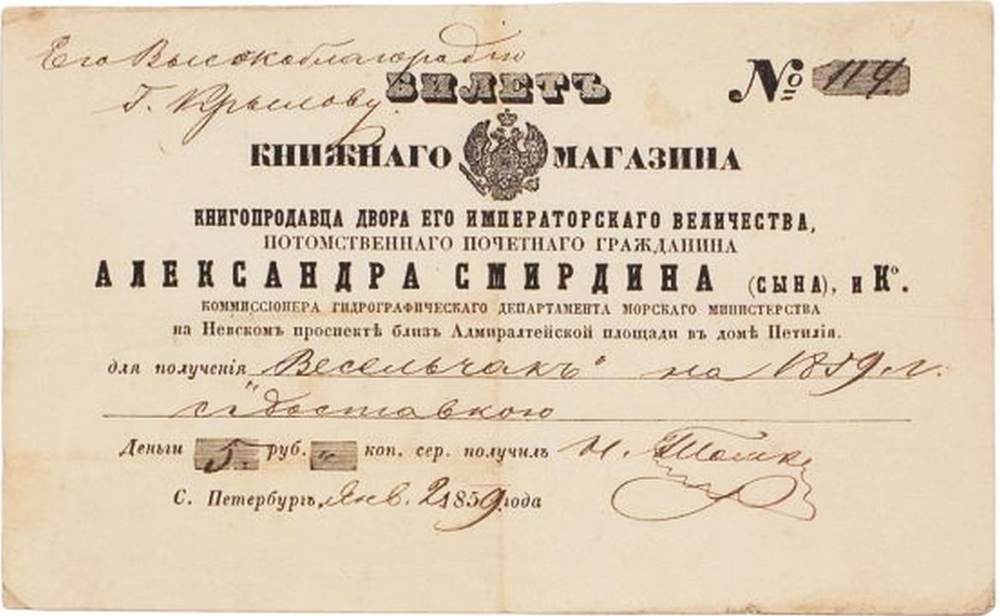 Его Высокоблагородiю
Г. Крылову
БИЛЕТЪ
№ 114
КНИЖНАГО МАГАЗИНА
КНИГОПРОДАВЦА ДВОРА ЕГО ИМПЕРАТОРСКАГО ВЕЛИЧЕСТВА,
ПОТОМСТВЕННАГО ПОЧЕТНАГО ГРАЖДАНИНА
АЛЕКСАНДРА СМИРДИНА (СЫНА), и Ко.
КОММИССIОНЕРА ГИДРОГРАФИЧЕСКАГО ДЕПАРТАМЕНТА МОРСКАГО МИНИСТЕРСТВА
на Невскомъ проспектѣ близъ Адмиралтейской площади въ домѣ Петилiя.
для полученiя „Весельчакъ" на 1859 г.
съ доставкою
Деньги 5 руб. „ коп. сер. получилъ И.
С. Петербургъ, Янв. 2 1859 года